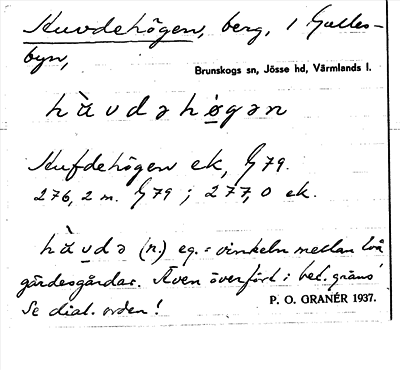 Huvdehögen, berg, i Gulles-
byn,
Brunskogs sn, Jösse hd, Värmlands l.
hằvdəhøgən
Hufdehögen ek, G79.
276,2 m. G79; 277,0 ek.
hằvdə (n.) eg. = vinkeln mellan två
gärdesgårdar. Även överfört i bet. gräns'
Se dial. orden!
P. O. GRANÉR 1937.